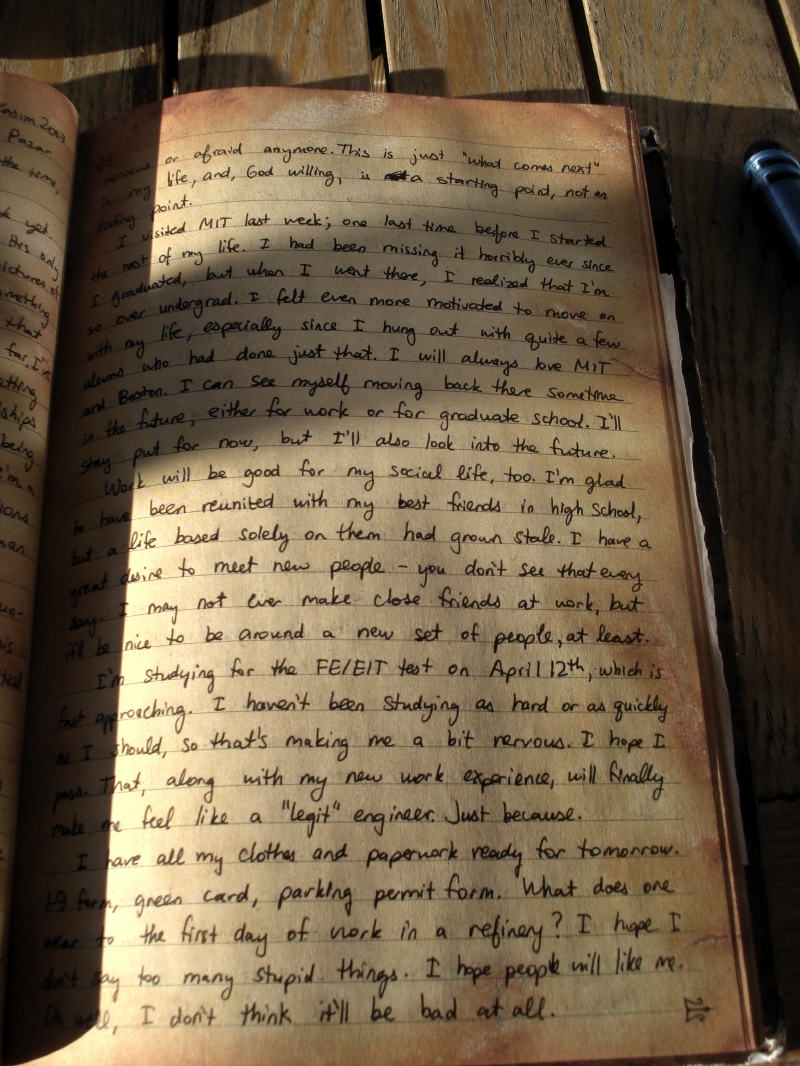 Kasim 2007
Pazar
the time,
k yet.
this only
pictures of
something
that
far. I've
ships
being
I'm a
ions
nervous or afraid anymore. This is just "what comes next"
in my life, and, God willing, is a starting point, not an
ending point.
I visited MIT last week; one last time before I started
the rest of my life. I had been missing it horribly ever since
I graduated, but when I went there, I realized that I'm
so over undergrad. I felt even more motivated to move on
with my life, especially since I hung out with quite a few
alums who had done just that. I will always love MIT
and Boston. I can see myself moving back there sometime
in the future, either for work or for graduate school. I'll
stay put for now, but I'll also look into the future.
Work will be good for my social life, too. I'm glad
to have been reunited with my best friends in high school,
but a life based solely on them had grown stale. I have a
great desire to meet new people - you don't see that every
day. I may not ever make close friends at work, but
it'll be nice to be around a new set of people, at least.
I'm studying for the FE/EIT test on April 12th, which is
fast approaching. I haven't been studying as hard or as quickly
as I should, so that's making me a bit nervous. I hope I
pass. That, along with my new work experience, will finally
make me feel like a "legit" engineer. Just because.
I have all my clothes and paperwork ready for tomorrow.
I-9 form, green card, parking permit form. What does one
wear to the first day of work in a refinery? I hope I
don't say too many stupid things. I hope people will like me.
Oh well, I don't think it'll be bad at all.